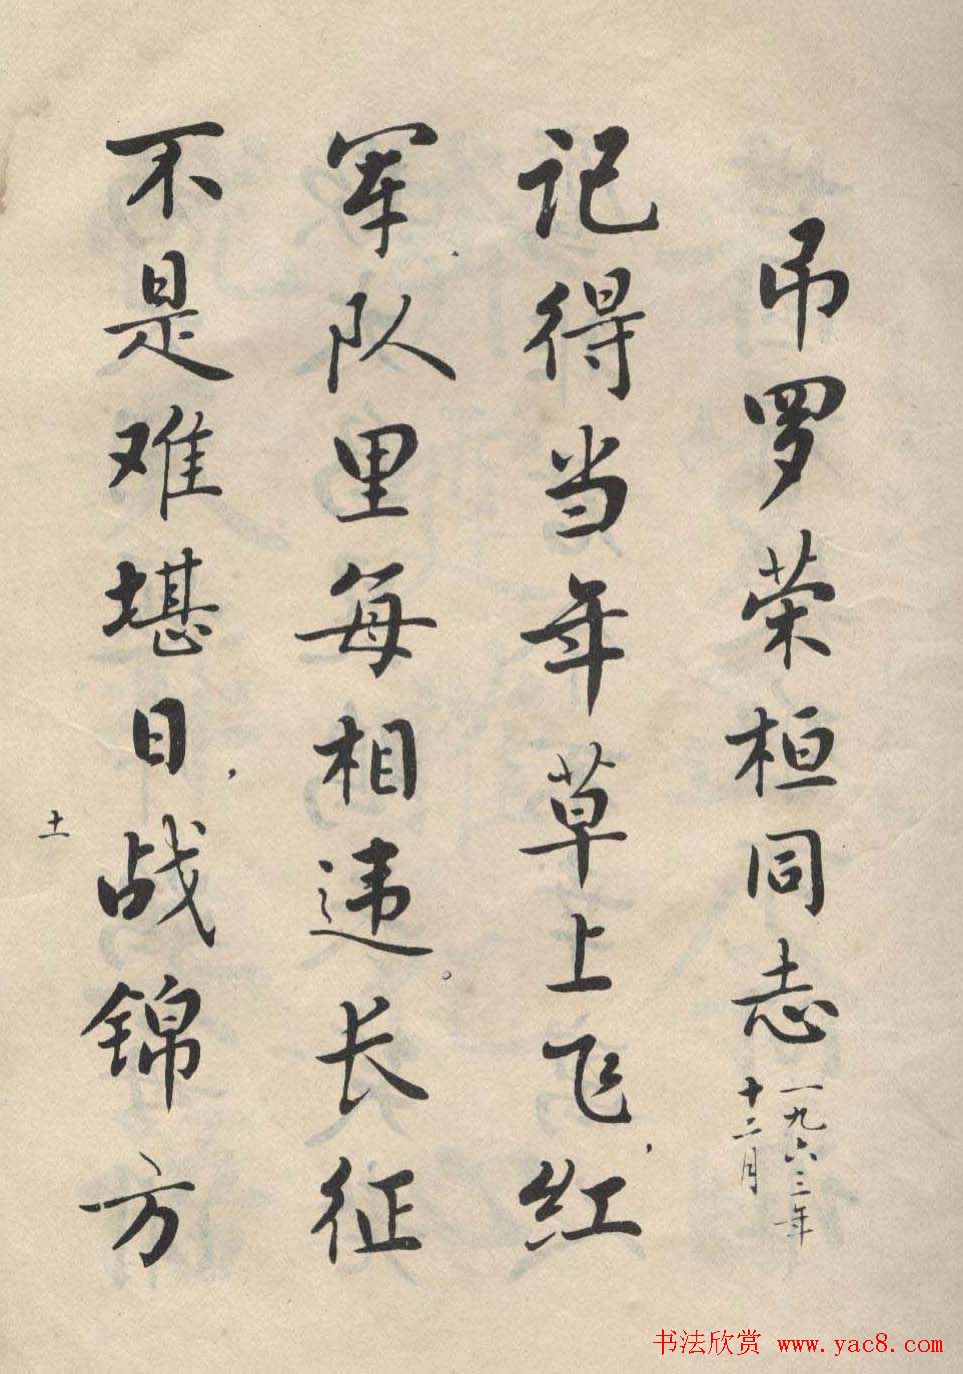 吊罗荣桓同志
一九六三年
十二月
记得当年草上飞，红
军队里每相违。长征
不是难堪日，战锦方
土
书法欣赏 www.yac8.com